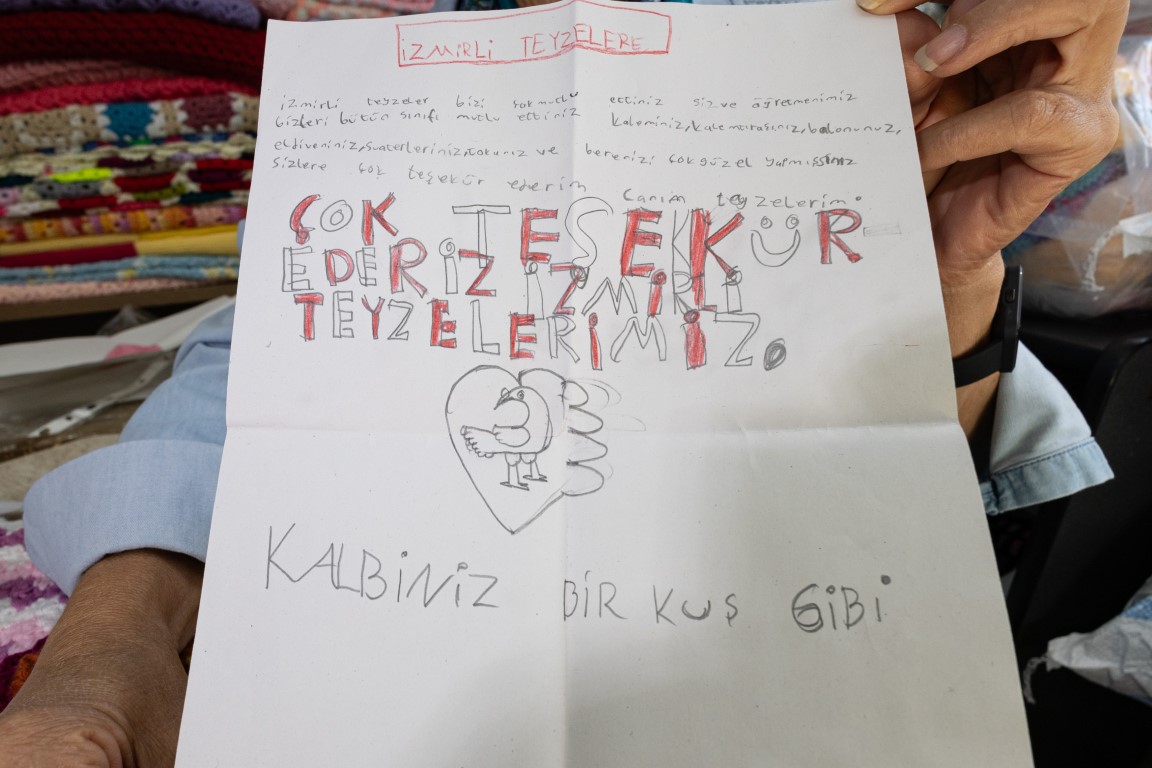 İZMİRLİ TEYZELERE
izmirli teyzeler bizi çok mutlu ettiniz siz ve öğretmenimiz
bizleri bütün sınıfı mutlu ettiniz kaleminiz, kalemtıraşınız, balonunuz,
eldiveniniz, suaterleriniz, tokanız ve berenizi çok güzel yapmışsınız
sizlere çok teşekür ederim canım teyzelerim.
ÇOK TEŞEKKÜR
EDERİZ İZMİRLİ
TEYZELERİMİZ.
KALBİNİZ BİR KUŞ GİBİ